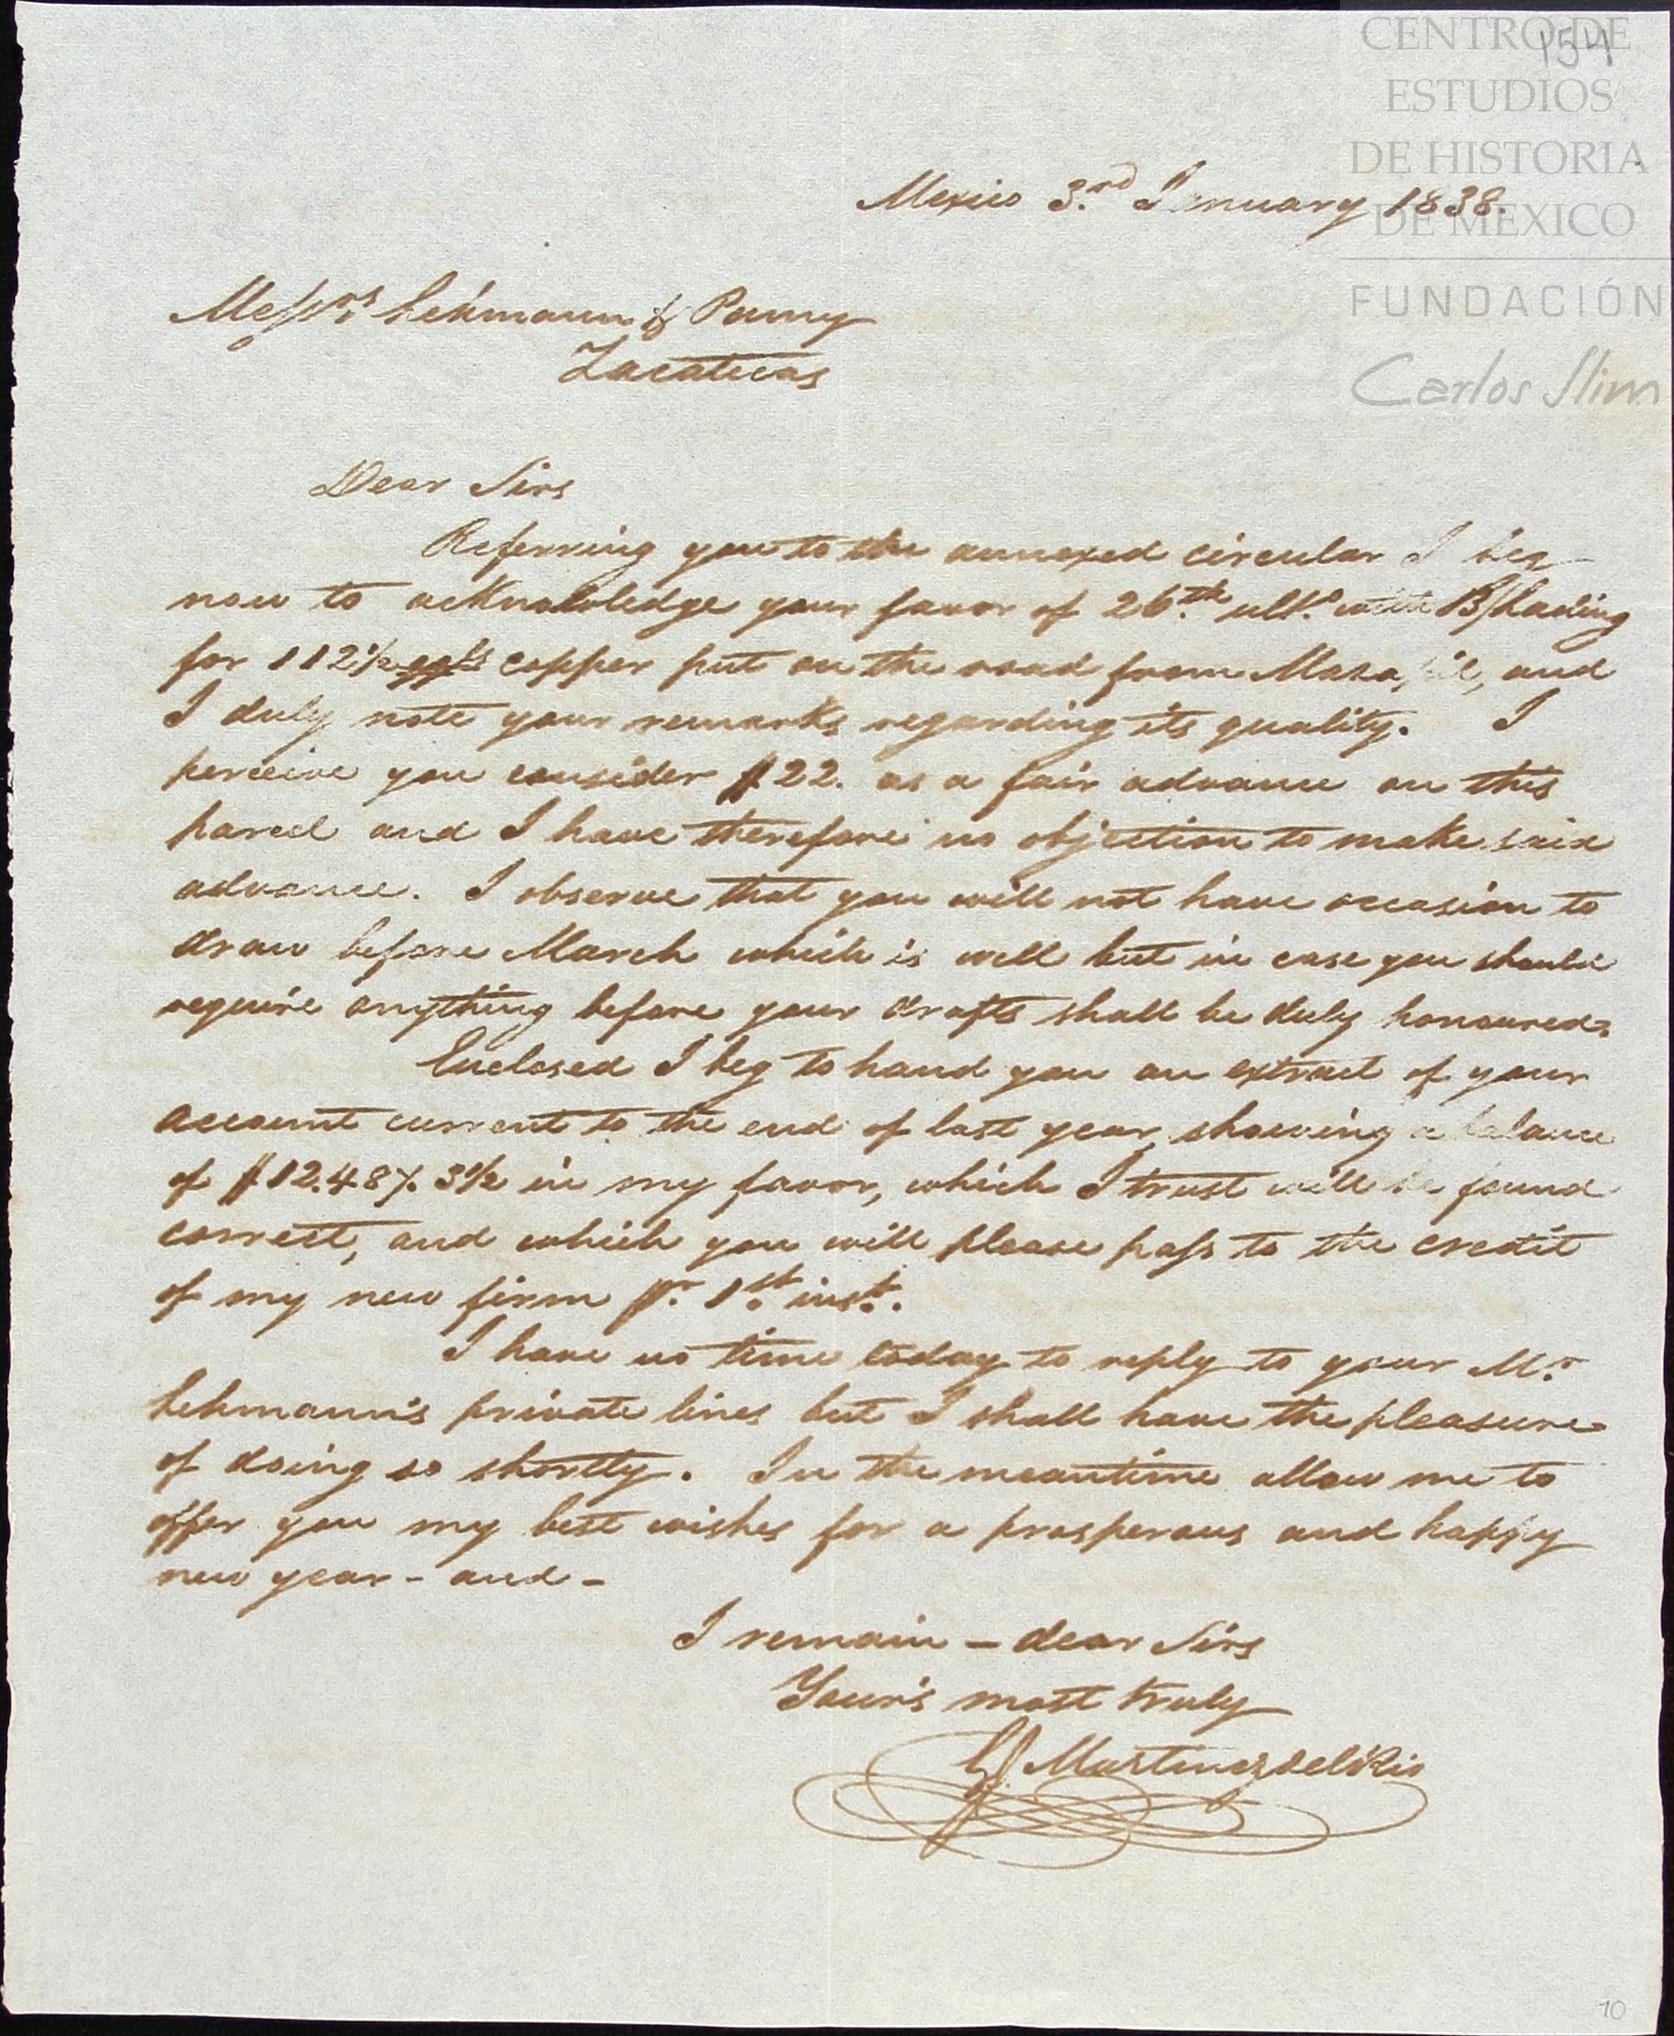 CENTRO DE
154
ESTUDIOS
DE HISTORIA
DE MÉXICO
FUNDACIÓN
Carlos Slim
Mexico 3.rd January 1838.
Messrs. Lehmann & Pamy
Zacatecas
Dear Sirs
Referring you to the annexed circular I beg
now to acknowledge your favor of 26.th ult.o with B/Lading
for 112½ copper put on the road from Mazapil, and
I duly note your remarks regarding its quality. I
perceive you consider $22. as a fair advance on this
parcel and I have therefore no objection to make said
advance. I observe that you will not have occasion to
draw before March which is well but in case you should
require anything before your drafts shall be duly honoured.
Enclosed I beg to hand you an extract of your
account current to the end of last year, showing a balance
of $12.487. 3½ in my favor, which I trust will be found
correct, and which you will please pass to the credit
of my new firm pr. 1st. inst.
I have no time today to reply to your Mr.
Lehmann's private lines but I shall have the pleasure
of doing so shortly. In the meantime allow me to
offer you my best wishes for a prosperous and happy
new year - and -
I remain - dear Sirs
Your's most truly
G Martinez del Rio
10